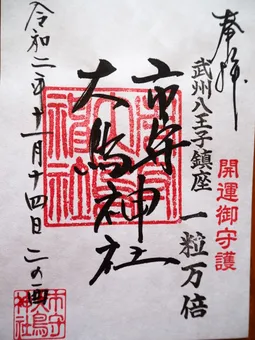 奉拝
開運御守護
武州八王子鎮座 一粒万倍
市守神社
大鳥神社
令和二年十一月十四日 二の酉